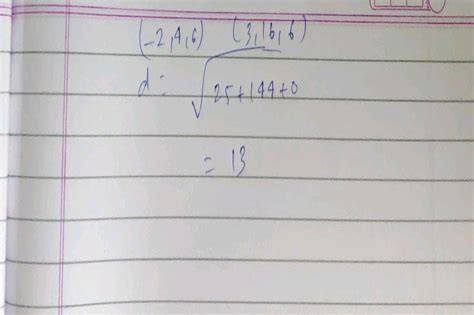 (-2,4,6) (3,16,6)
d = √25+144+0
= 13